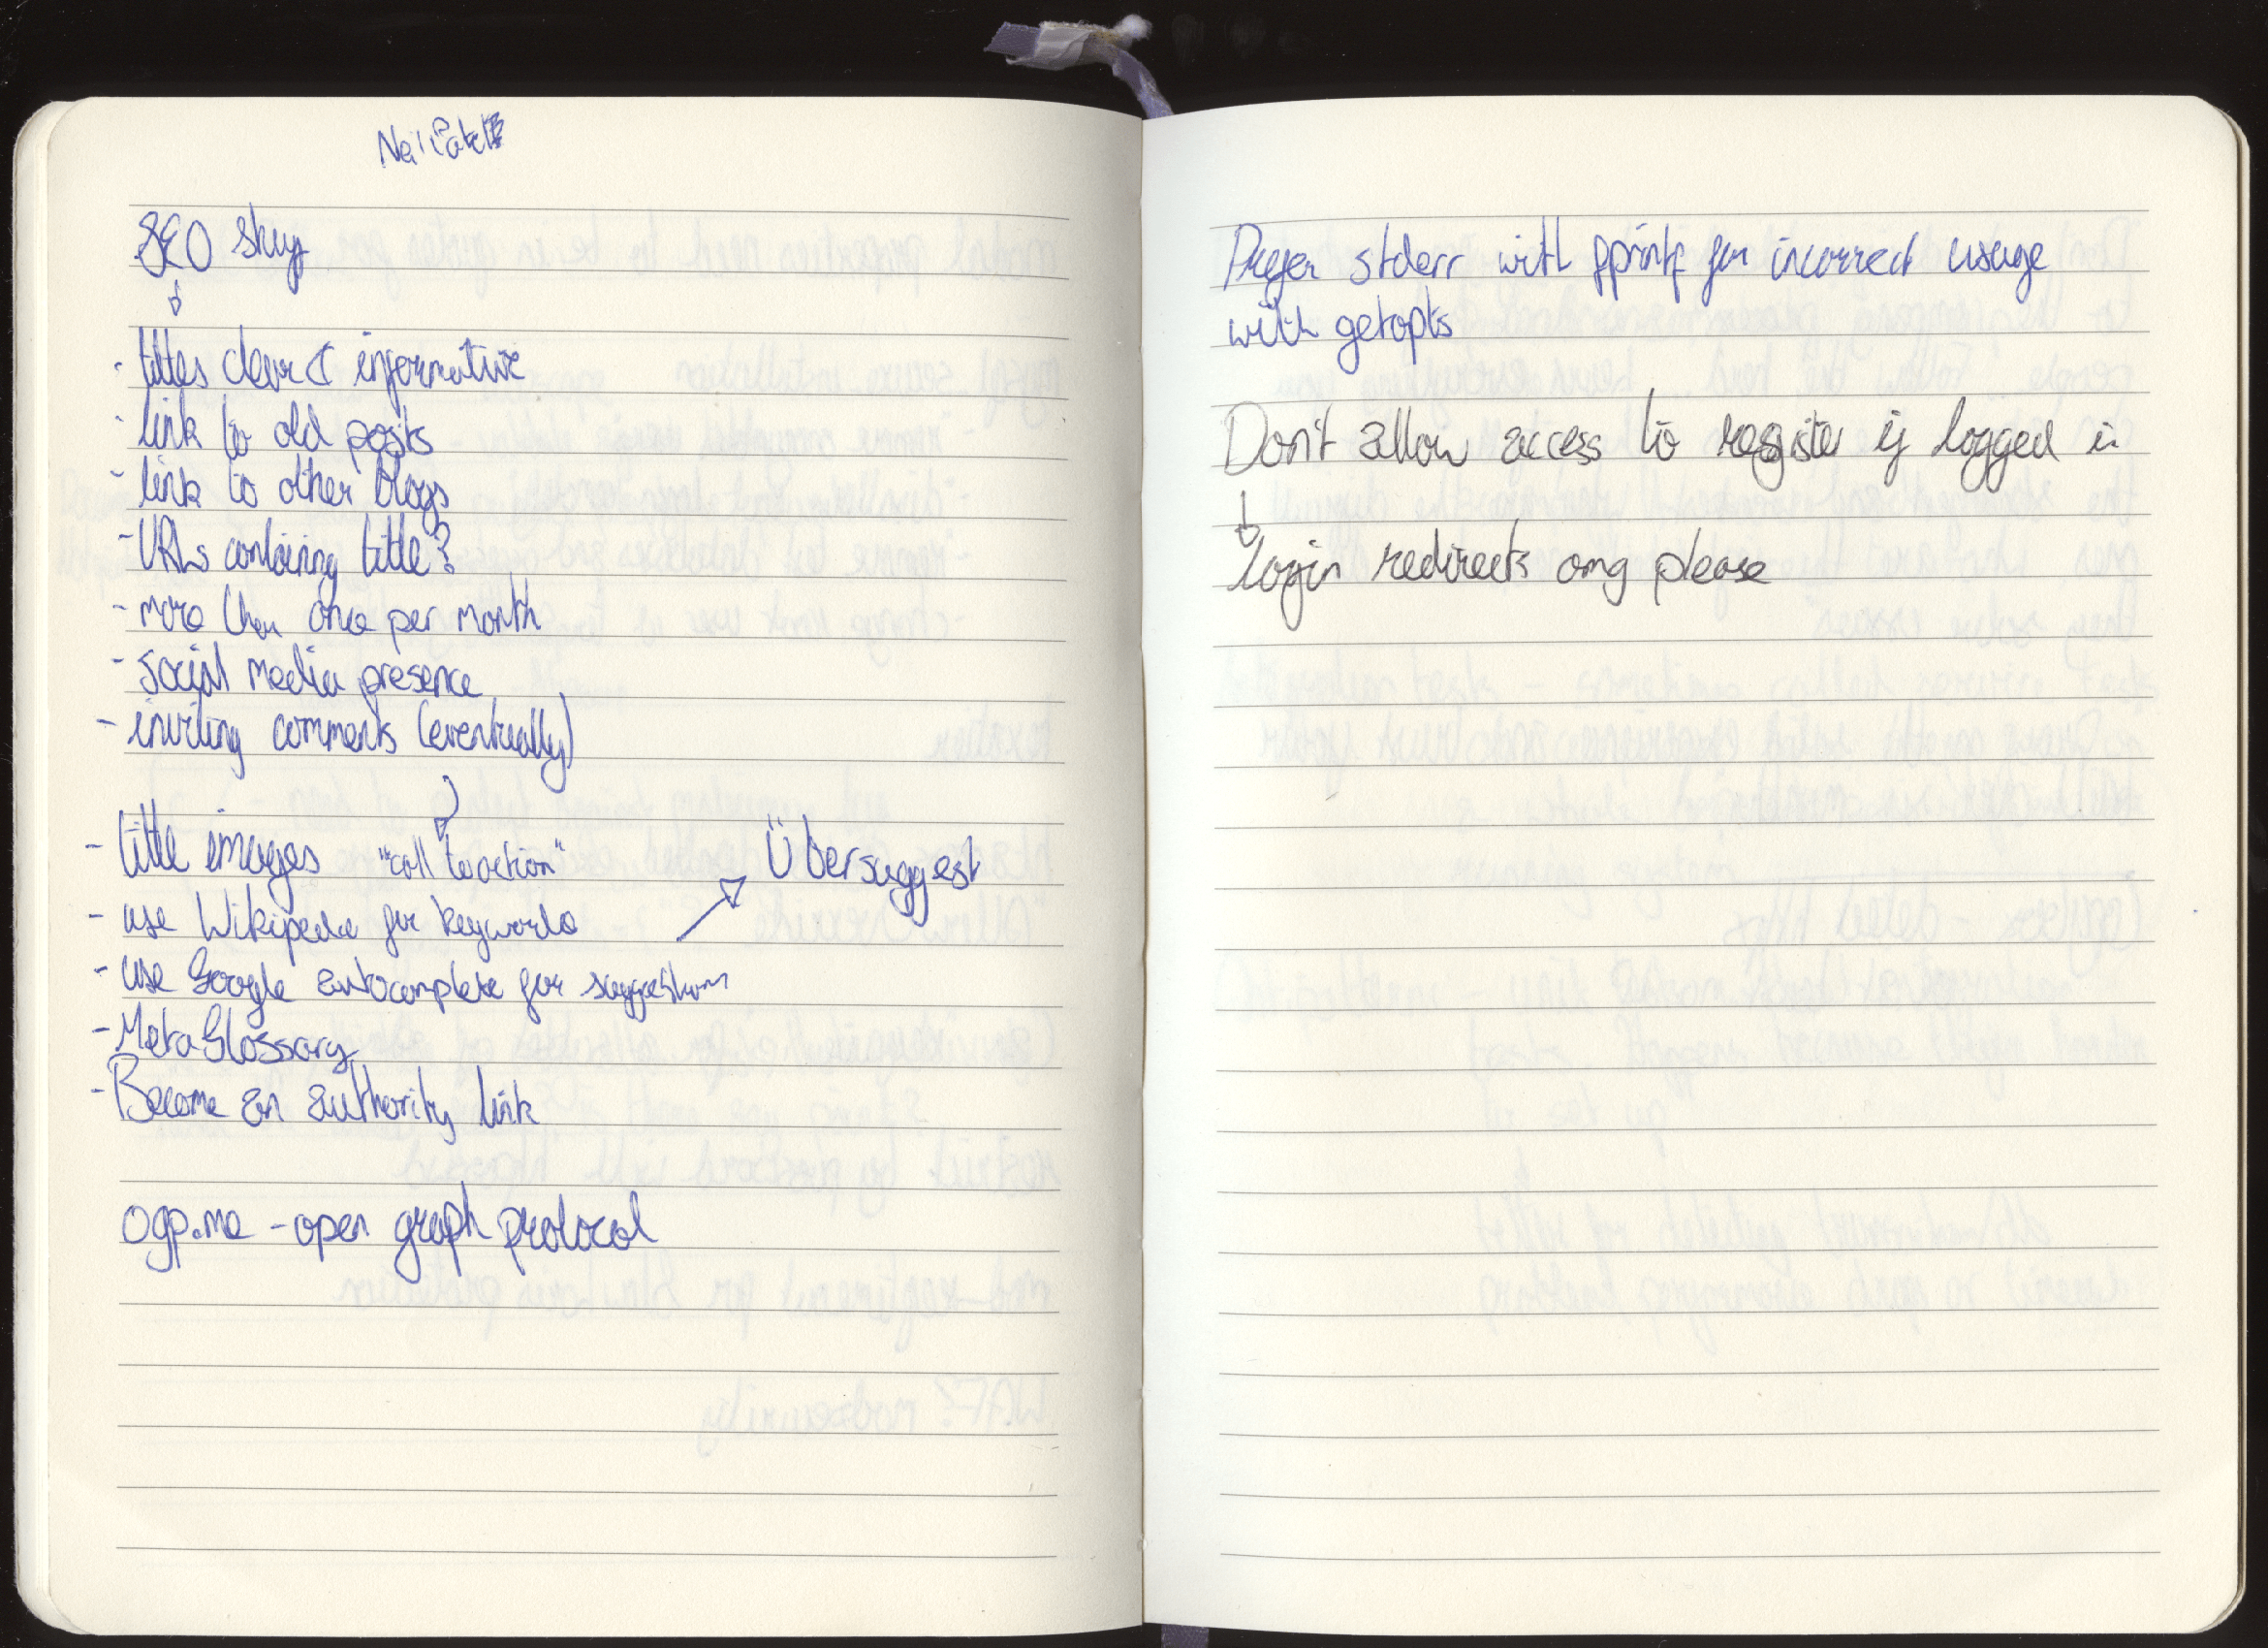 Neil Patel
SEO shy
- titles clear & informative
- link to old posts
- link to other blogs
- URLs containing title?
- more than once per month
- social media presence
- inviting comments (eventually)
- title images "call to action"
Übersuggest
- use Wikipedia for keywords
- use Google autocomplete for suggestions
- Meta Glossary
- Become an authority link
ogp.me - open graph protocol
Prefer stderr with fprintf for incorrect usage
with getopts
Don't allow access to register if logged in
login redirects omg please